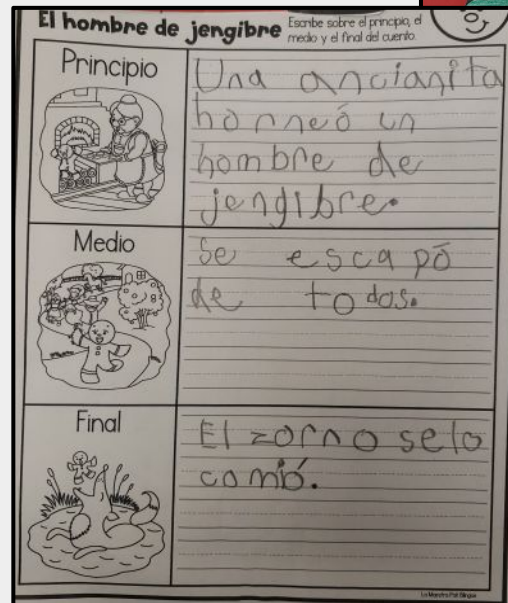 El hombre de jengibre
Escribe sobre el principio, el
medio y el final del cuento.
Principio
Una ancianita
horneó un
hombre de
jengibre.
Medio
se escapó
de todos.
Final
El zorno selo
comió.
La Maestra Pati Bilingue